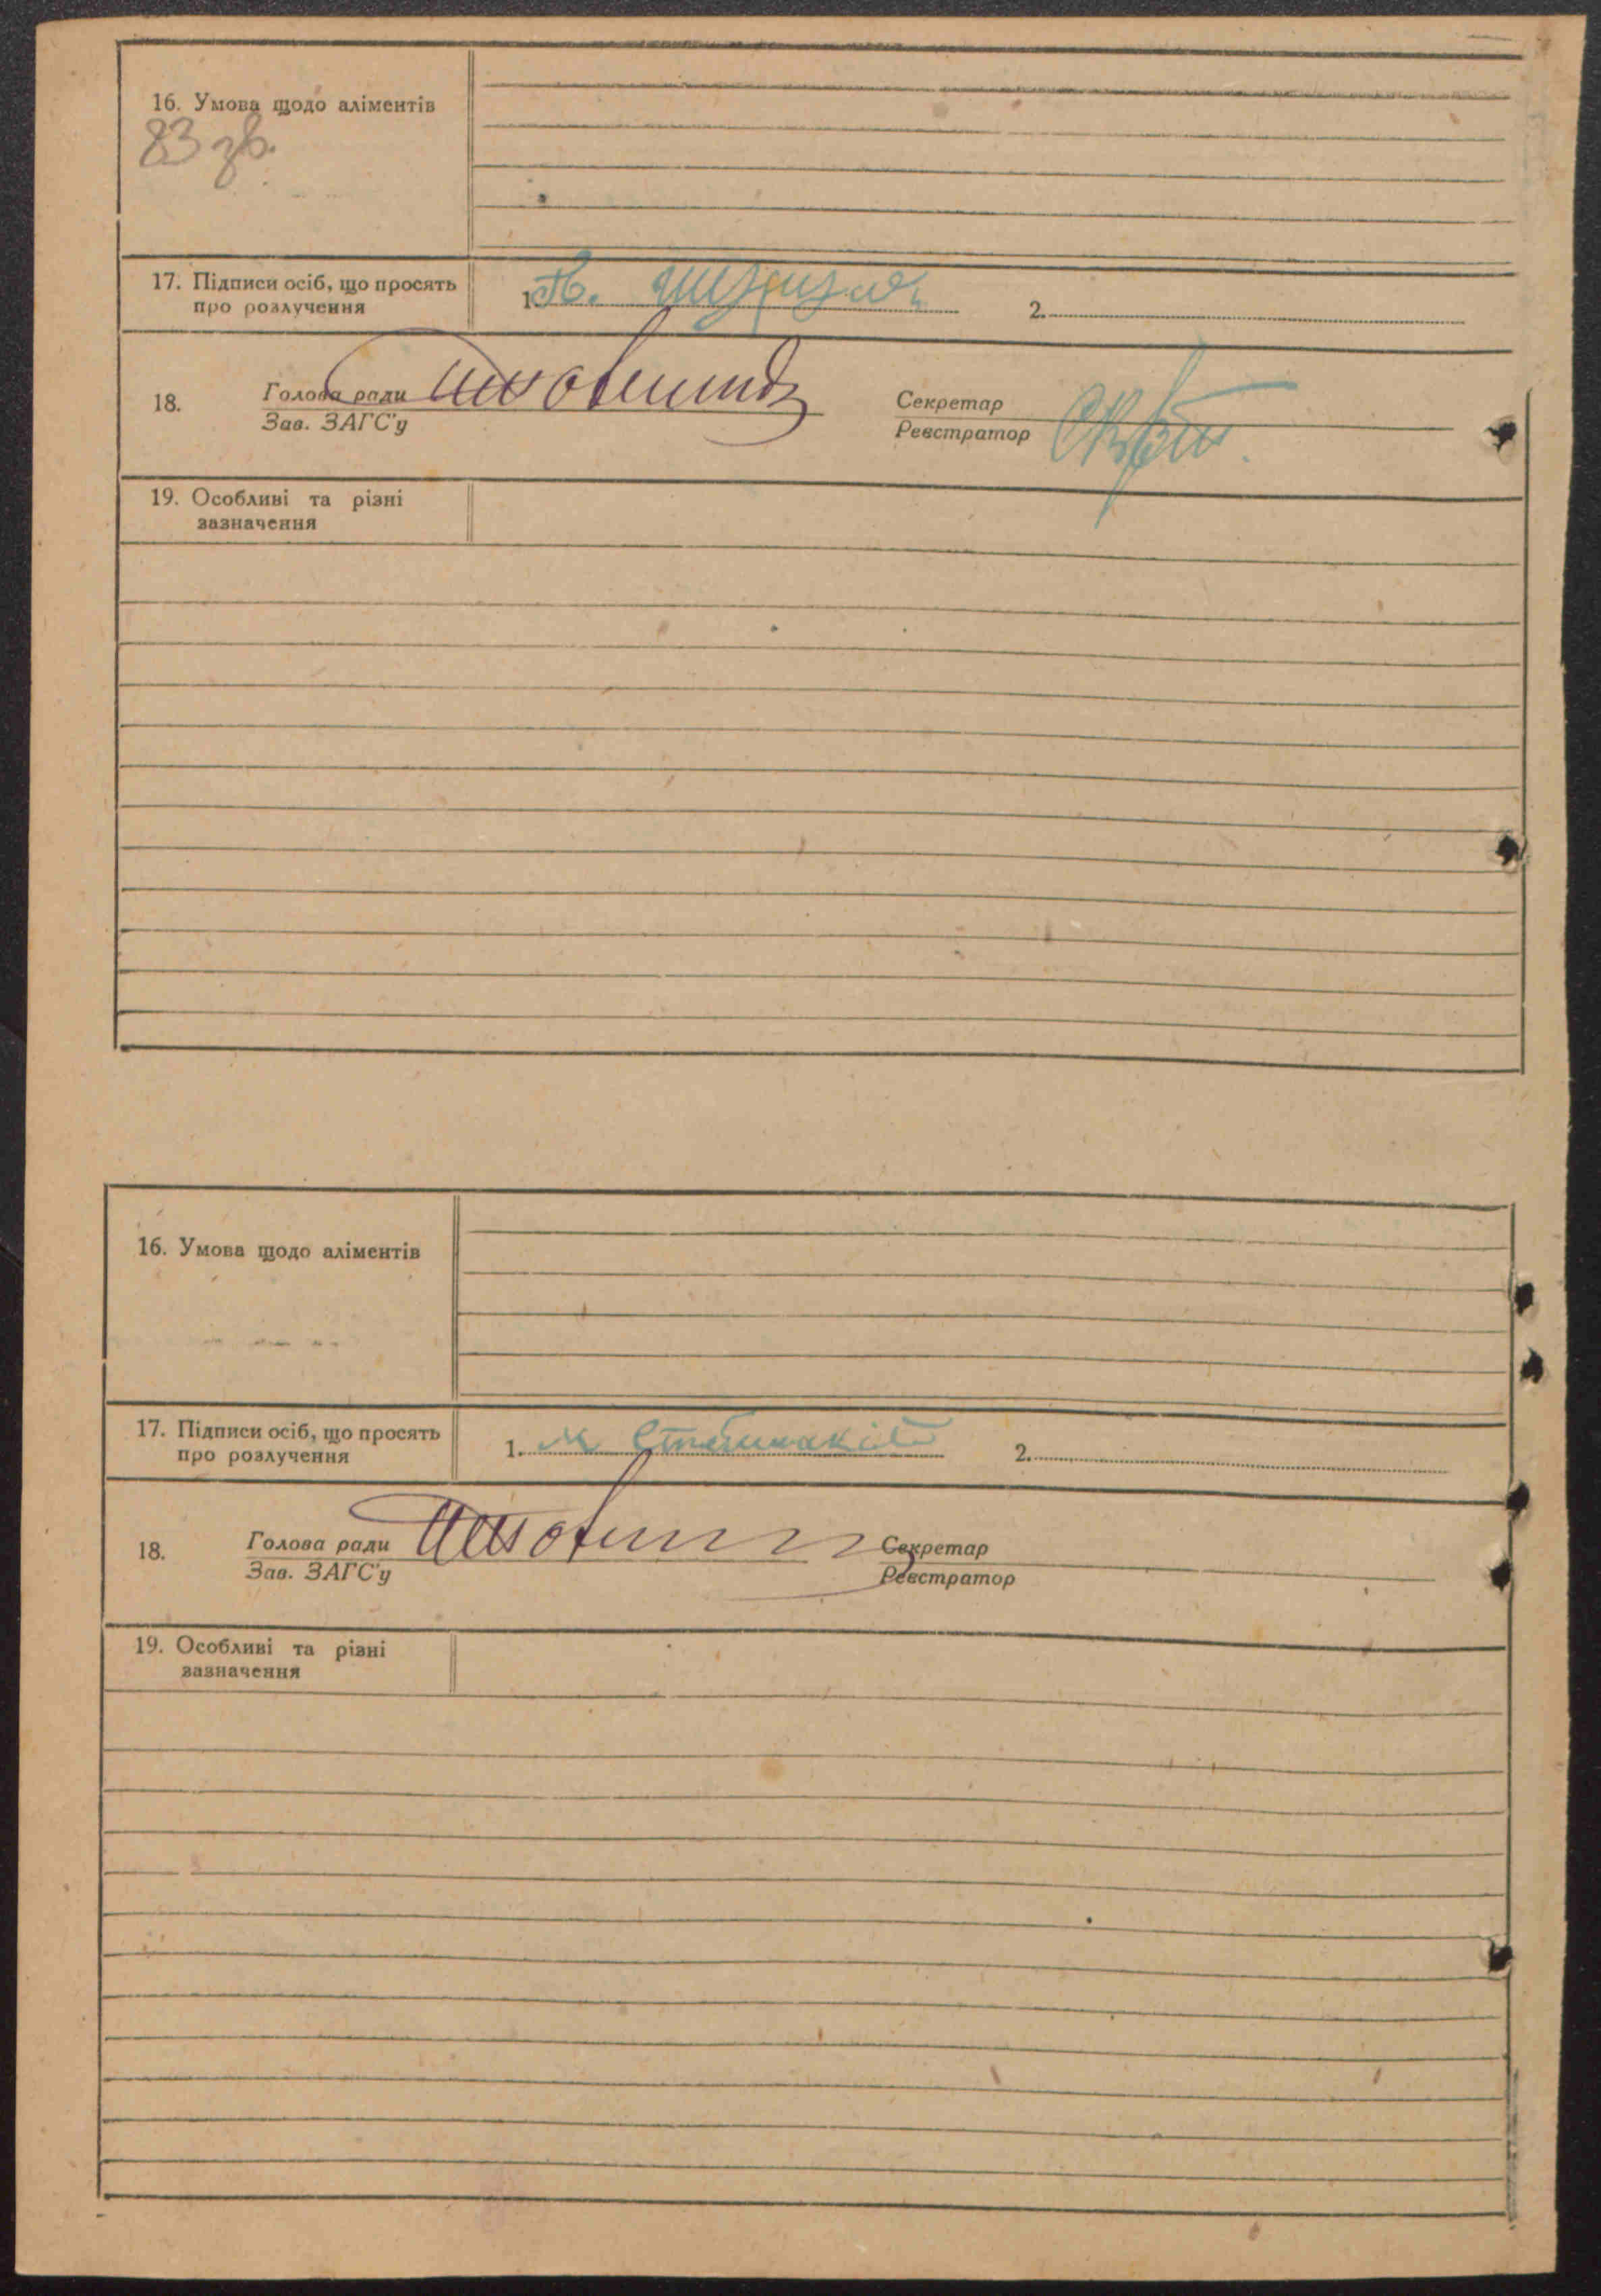 16. Умова щодо аліментів
83 зв.
17. Підписи осіб, що просять
про розлучення
1.
2.
18.
Голова ради
Зав. ЗАГС'у
Секретар
Реєстратор
19. Особливі та різні
зазначення
16. Умова щодо аліментів
17. Підписи осіб, що просять
про розлучення
1. М
2.
18.
Голова ради
Зав. ЗАГС'у
Секретар
Реєстратор
19. Особливі та різні
зазначення